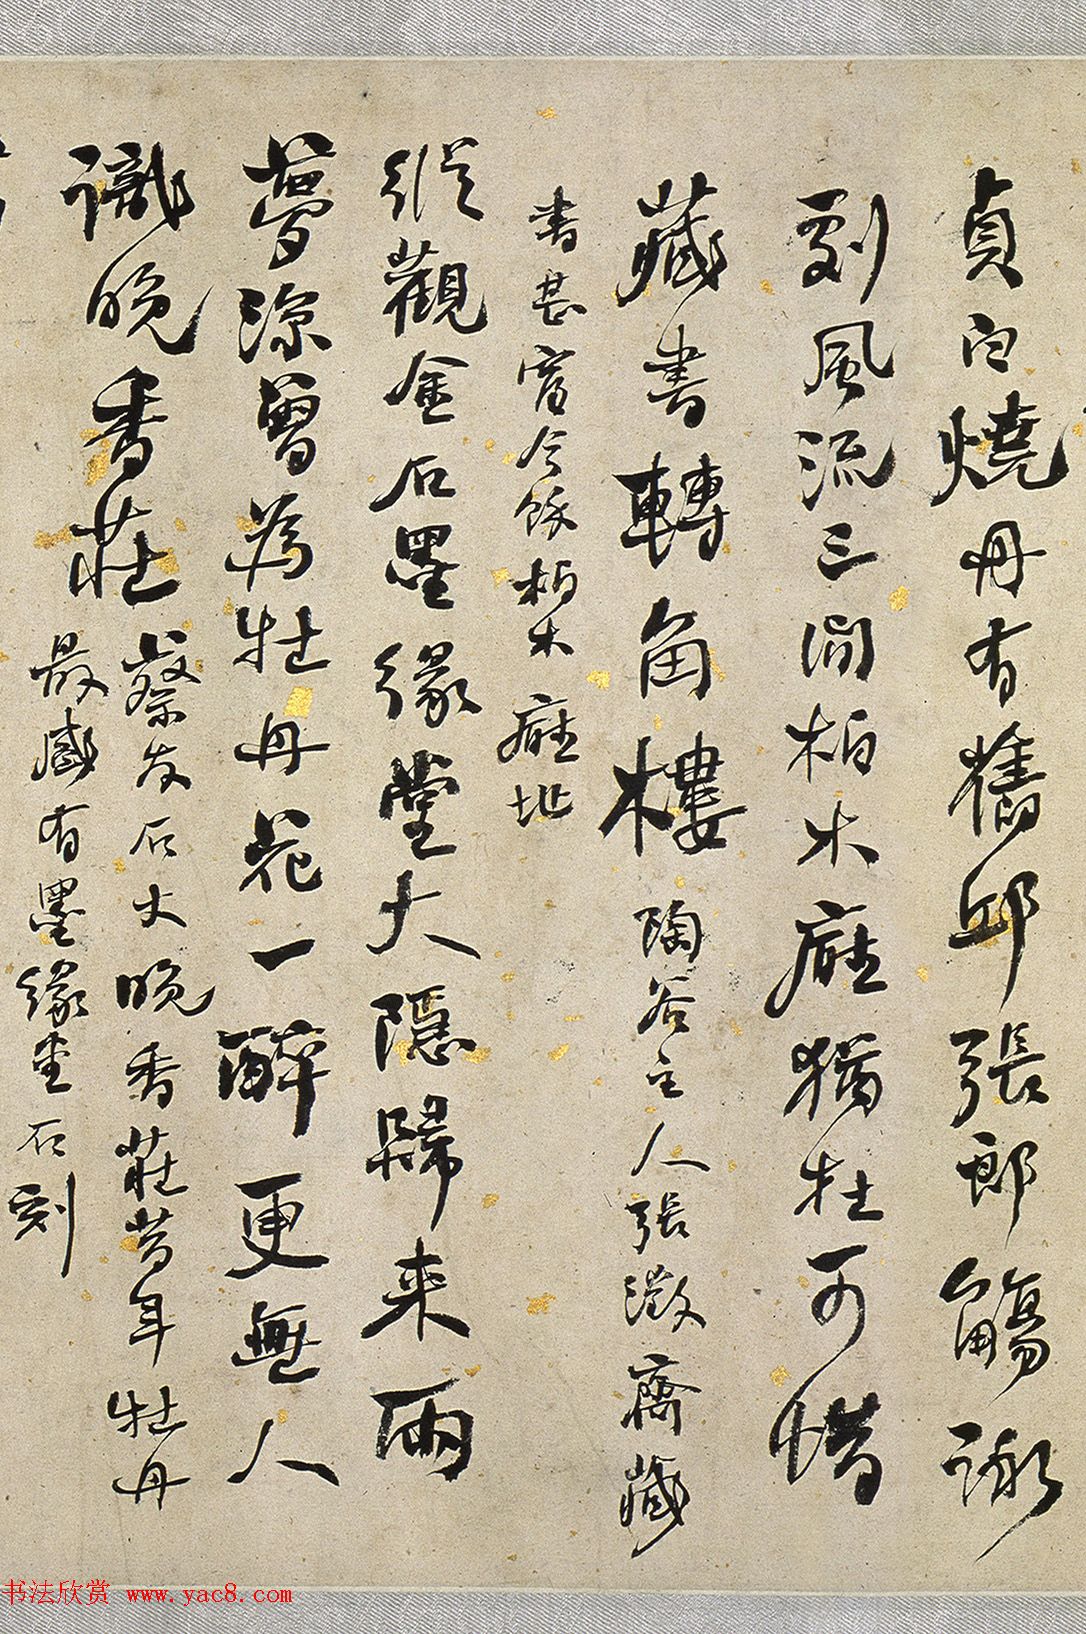 貞白燒丹有舊邱張郎觴詠
劇風流三間柏木廳猶在可惜
藏書轉角樓陶谷主人張澂齋藏
書甚富今餘柏木廳址
縱觀金石墨緣堂大隱歸来兩
夢涼曾為牡丹花一醉更無人
識晚香莊蔡友石丈晚香莊昔年牡丹
最盛有墨緣堂石刻
书法欣赏 www.yac8.com